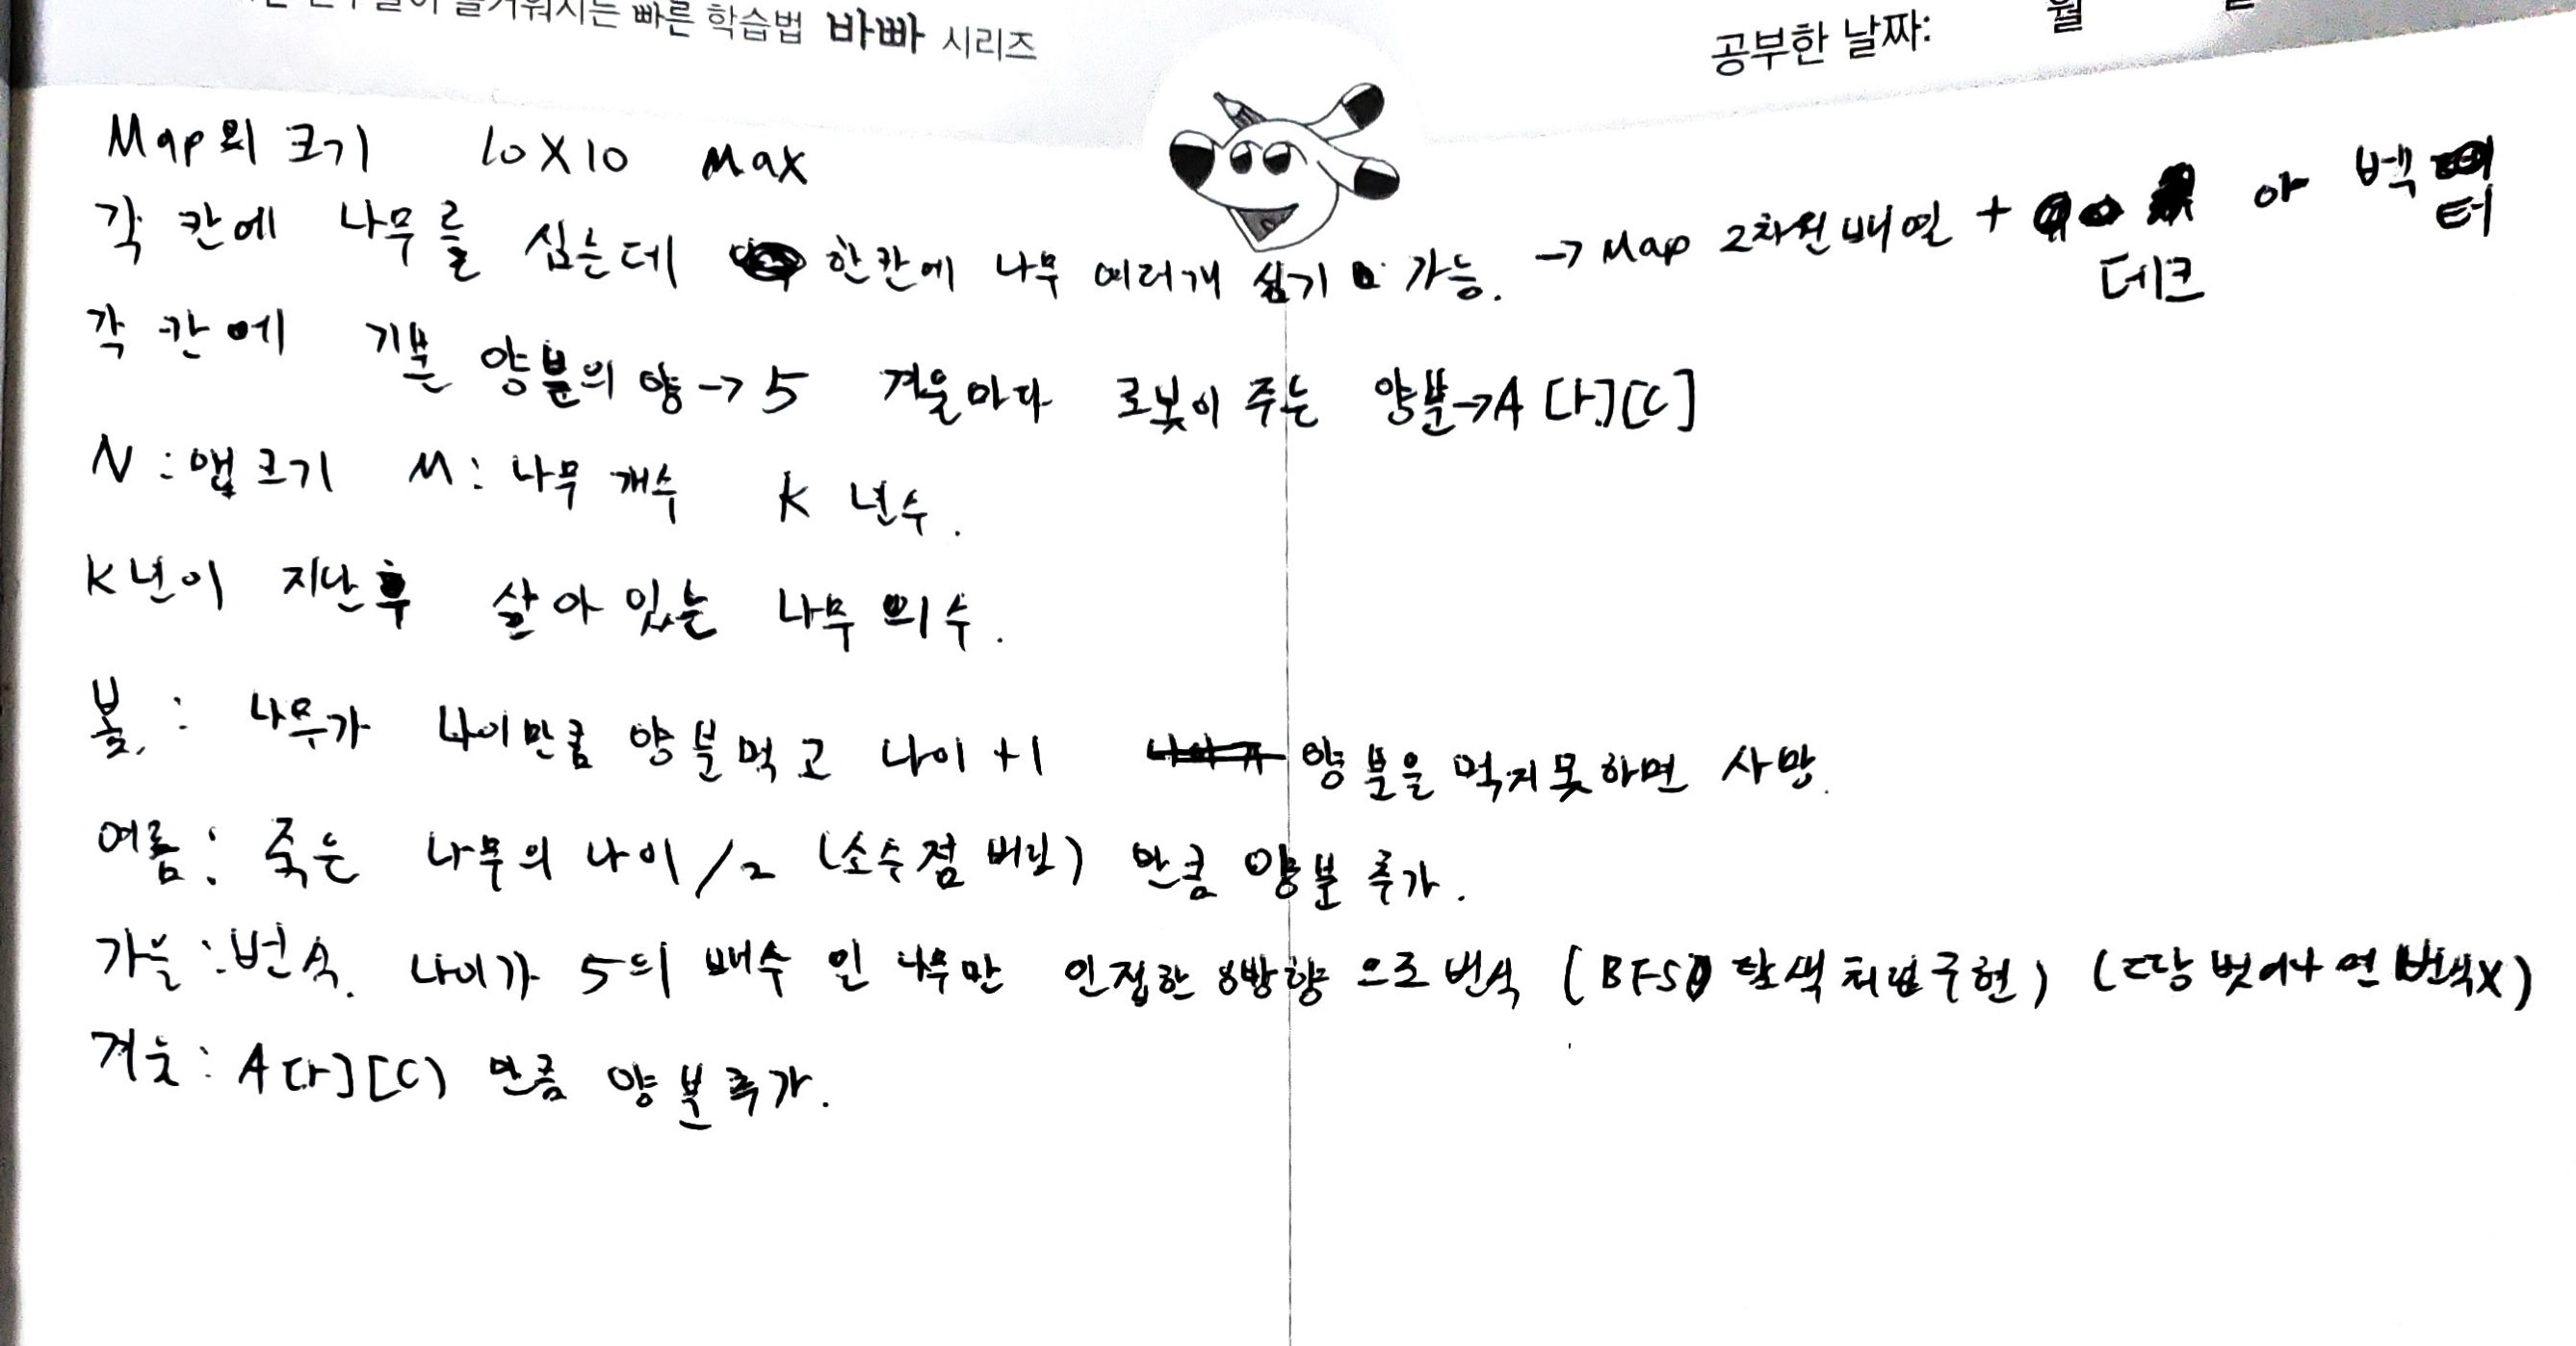 즐거워지는 빠른 학습법 바빠 시리즈
공부한 날짜: 월
Map의 크기 10X10 Max
각 칸에 나무를 심는데 한칸에 나무 여러개 심기 가능. → Map 2차원배열 + 데크 or 벡터
각 칸에 기본 양분의 양→5 겨울마다 로봇이 주는 양분→A[r][c]
N : 맵크기 M : 나무 개수 K 년수.
K년이 지난후 살아있는 나무의수.
봄 : 나무가 나이만큼 양분먹고 나이+1 양분을 먹지못하면 사망.
여름 : 죽은 나무의 나이/2 (소수점 버림) 만큼 양분 추가.
가을 : 번식. 나이가 5의 배수 인 나무만 인접한 8방향 으로 번식 (BFS 탐색처럼구현) (땅 벗어나면 번식X)
겨울 : A[r][c] 만큼 양분추가.